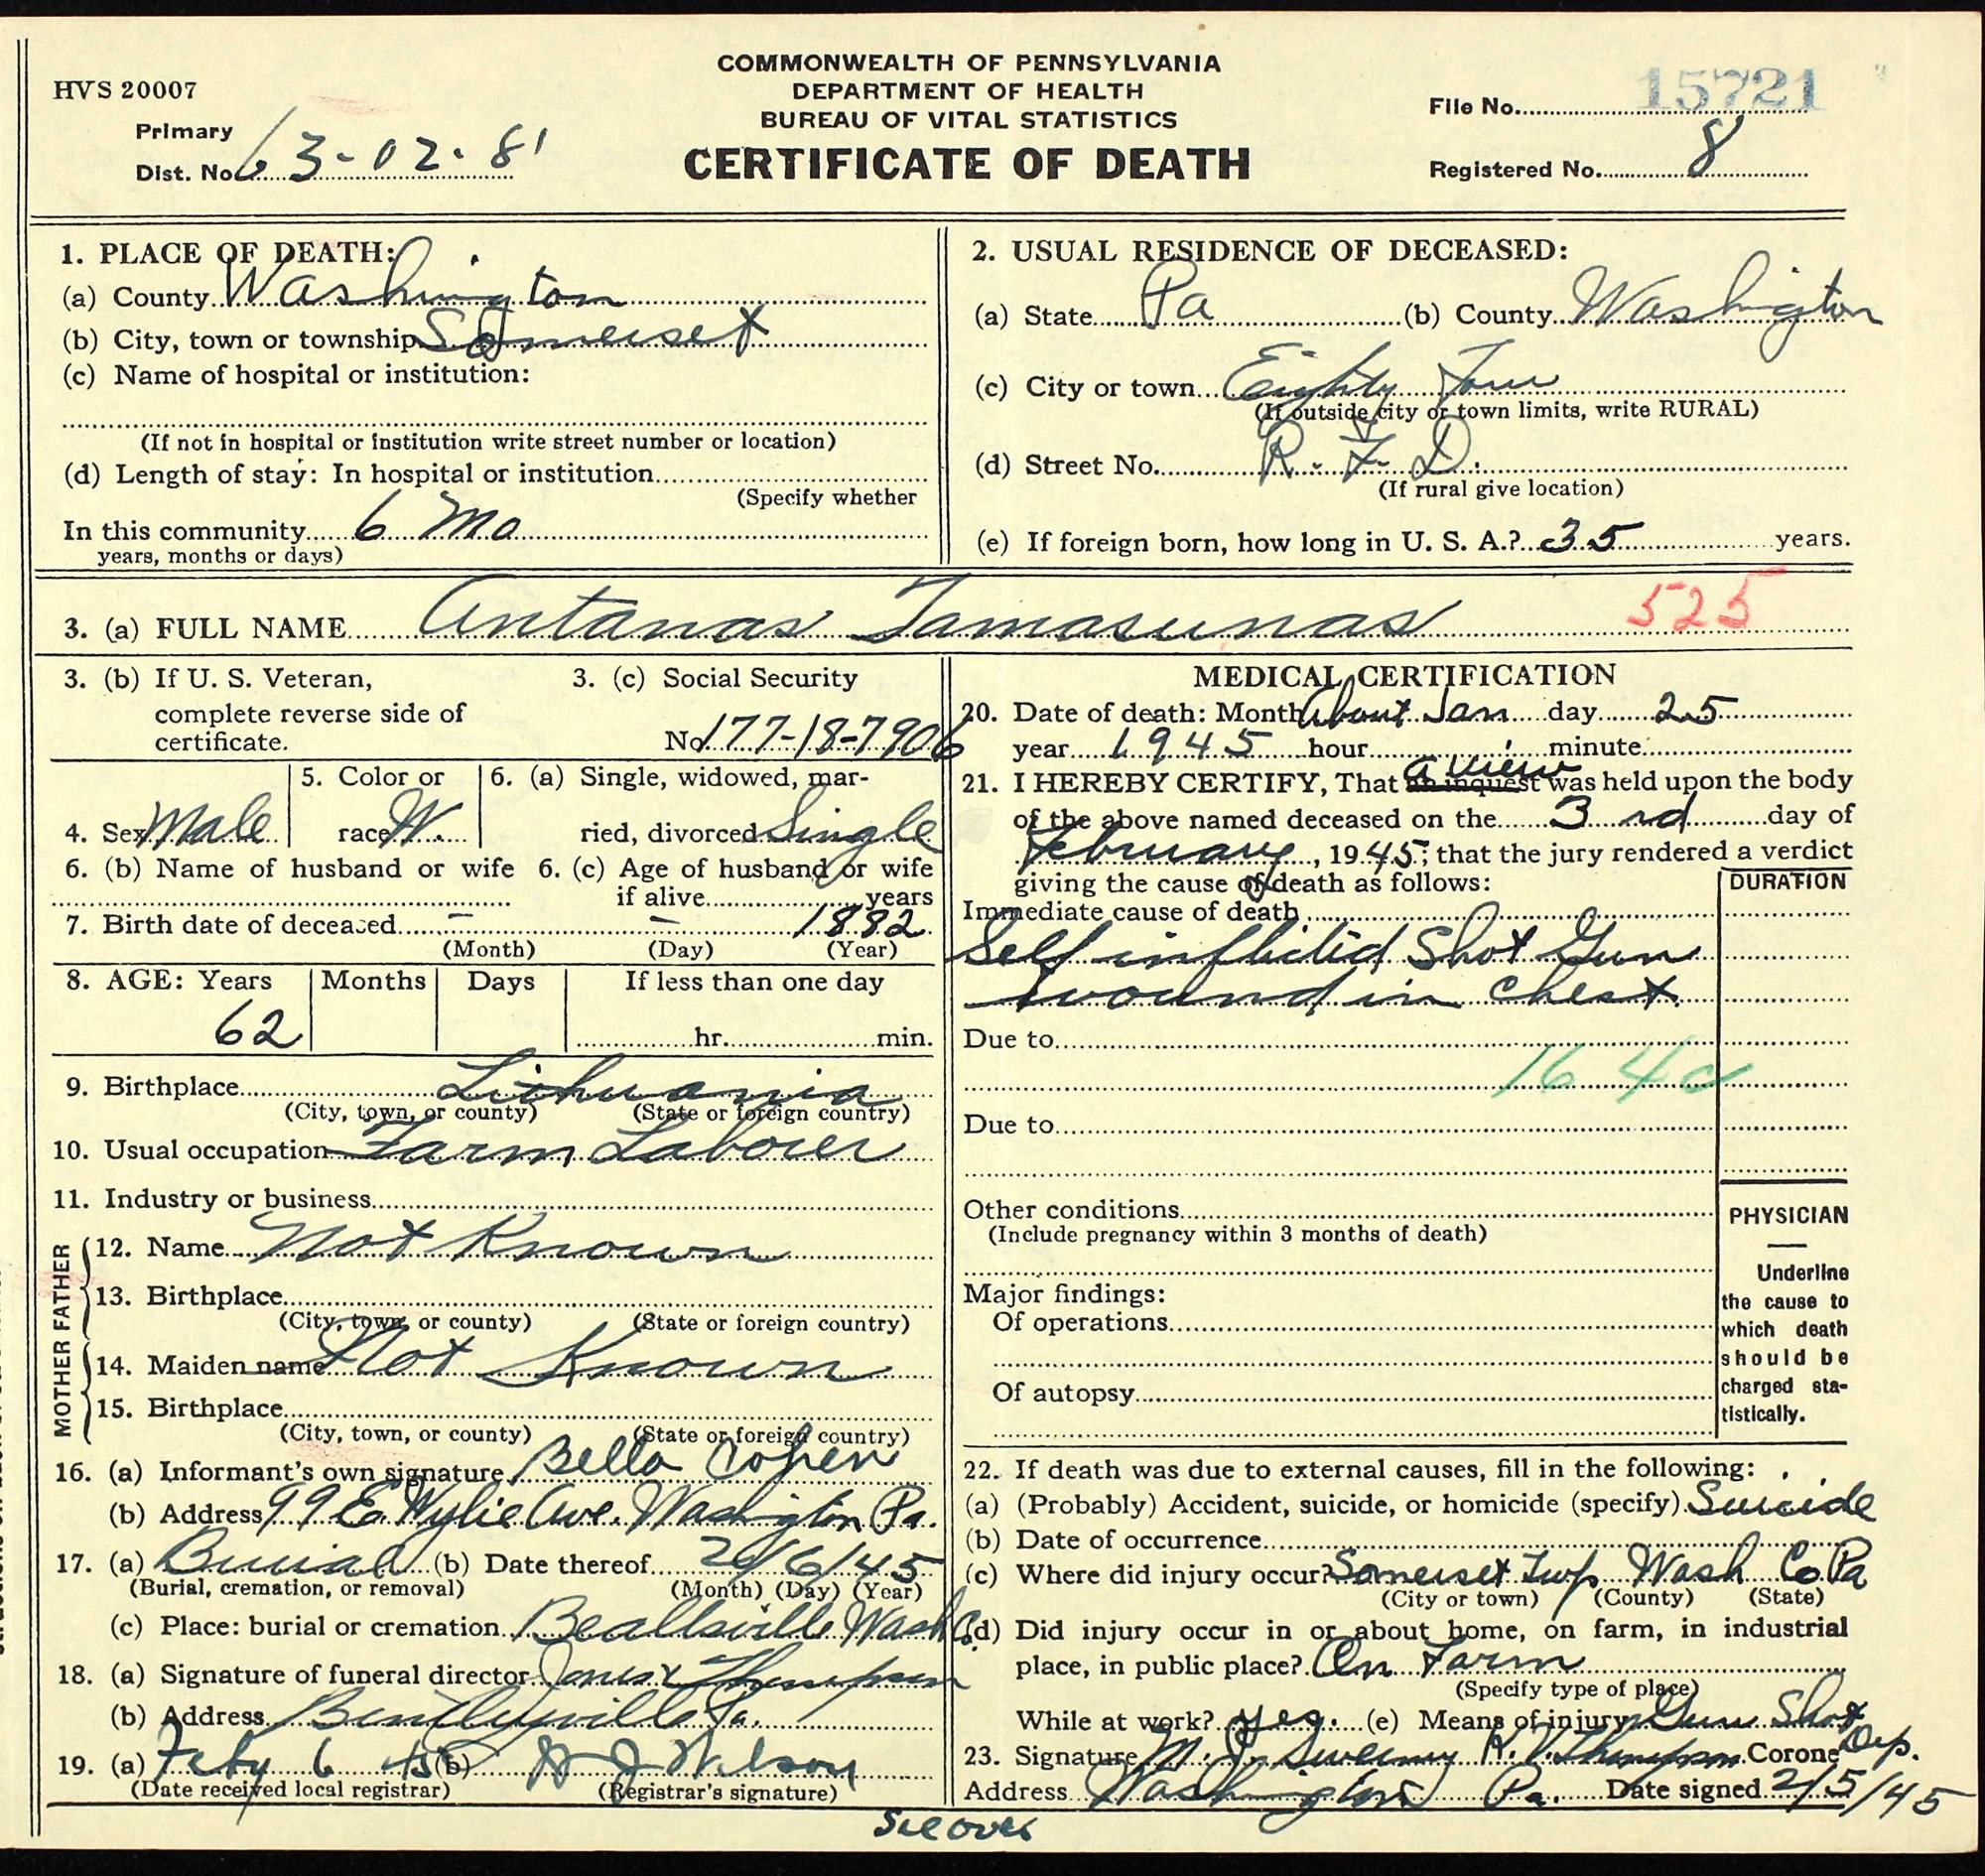 HVS 20007
COMMONWEALTH OF PENNSYLVANIA
DEPARTMENT OF HEALTH
BUREAU OF VITAL STATISTICS
CERTIFICATE OF DEATH
Primary
Dist. No. 63-02-81
File No. 15721
Registered No. 8
1. PLACE OF DEATH:
(a) County Washington
(b) City, town or township Somerset
(c) Name of hospital or institution:
(If not in hospital or institution write street number or location)
(d) Length of stay: In hospital or institution
(Specify whether
In this community 6 Mo
years, months or days)
2. USUAL RESIDENCE OF DECEASED:
(a) State Pa (b) County Washington
(c) City or town Eighty Four
(If outside city or town limits, write RURAL)
(d) Street No. R. F. D.
(If rural give location)
(e) If foreign born, how long in U. S. A.? 35 years.
3. (a) FULL NAME Antanas Tamasunas 525
3. (b) If U. S. Veteran,
complete reverse side of
certificate.
3. (c) Social Security
No. 177-18-7906
4. Sex Male
5. Color or
race W.
6. (a) Single, widowed, mar-
ried, divorced Single
6. (b) Name of husband or wife
6. (c) Age of husband or wife
if alive years
7. Birth date of deceased - - 1882
(Month) (Day) (Year)
8. AGE: Years Months Days If less than one day
62 hr. min.
9. Birthplace Lithuania
(City, town, or county) (State or foreign country)
10. Usual occupation Farm Laborer
11. Industry or business
FATHER
12. Name Not Known
13. Birthplace
(City, town, or county) (State or foreign country)
MOTHER
14. Maiden name Not Known
15. Birthplace
(City, town, or county) (State or foreign country)
16. (a) Informant's own signature Bella Cohen
(b) Address 99 E. Wylie Ave. Washington Pa.
17. (a) Burial (b) Date thereof 2/6/45
(Burial, cremation, or removal) (Month) (Day) (Year)
(c) Place: burial or cremation Beallsville Wash Co.
18. (a) Signature of funeral director Jones & Thompson
(b) Address Bentleyville Pa.
19. (a) Feby 6 45 (b) H J Wilson
(Date received local registrar) (Registrar's signature)
MEDICAL CERTIFICATION
20. Date of death: Month About Jan day 25
year 1945 hour minute
21. I HEREBY CERTIFY, That an inquest a view was held upon the body
of the above named deceased on the 3rd day of
February, 1945; that the jury rendered a verdict
giving the cause of death as follows:
DURATION
Immediate cause of death
Self inflicted Shot Gun
wound in chest.
Due to
164c
Due to
Other conditions
(Include pregnancy within 3 months of death)
Major findings:
Of operations
Of autopsy
PHYSICIAN
Underline
the cause to
which death
should be
charged sta-
tistically.
22. If death was due to external causes, fill in the following:
(a) (Probably) Accident, suicide, or homicide (specify) Suicide
(b) Date of occurrence
(c) Where did injury occur? Somerset Twp Wash Co Pa
(City or town) (County) (State)
(d) Did injury occur in or about home, on farm, in industrial
place, in public place? On Farm
(Specify type of place)
While at work? yes. (e) Means of injury Gun Shot
23. Signature M. J. Sweeney H. V. Thompson Coroner Dep.
Address Washington Pa. Date signed 2/5/45
See over